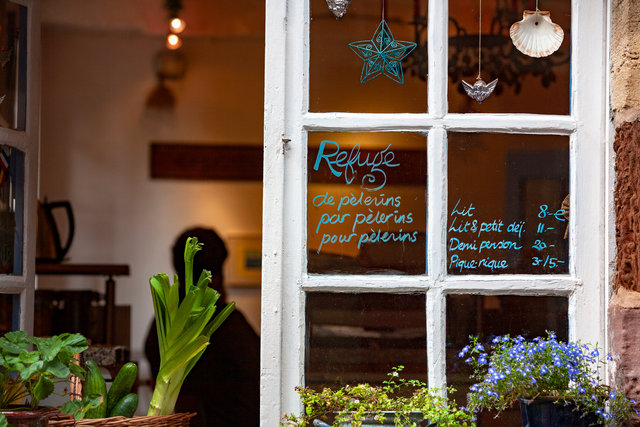 Refuge
de pèlerins
par pèlerins
pour pèlerins
Lit 8-€
Lit & petit déj. 11.-
Demi person 20-
Pique-nique 3-/5.-